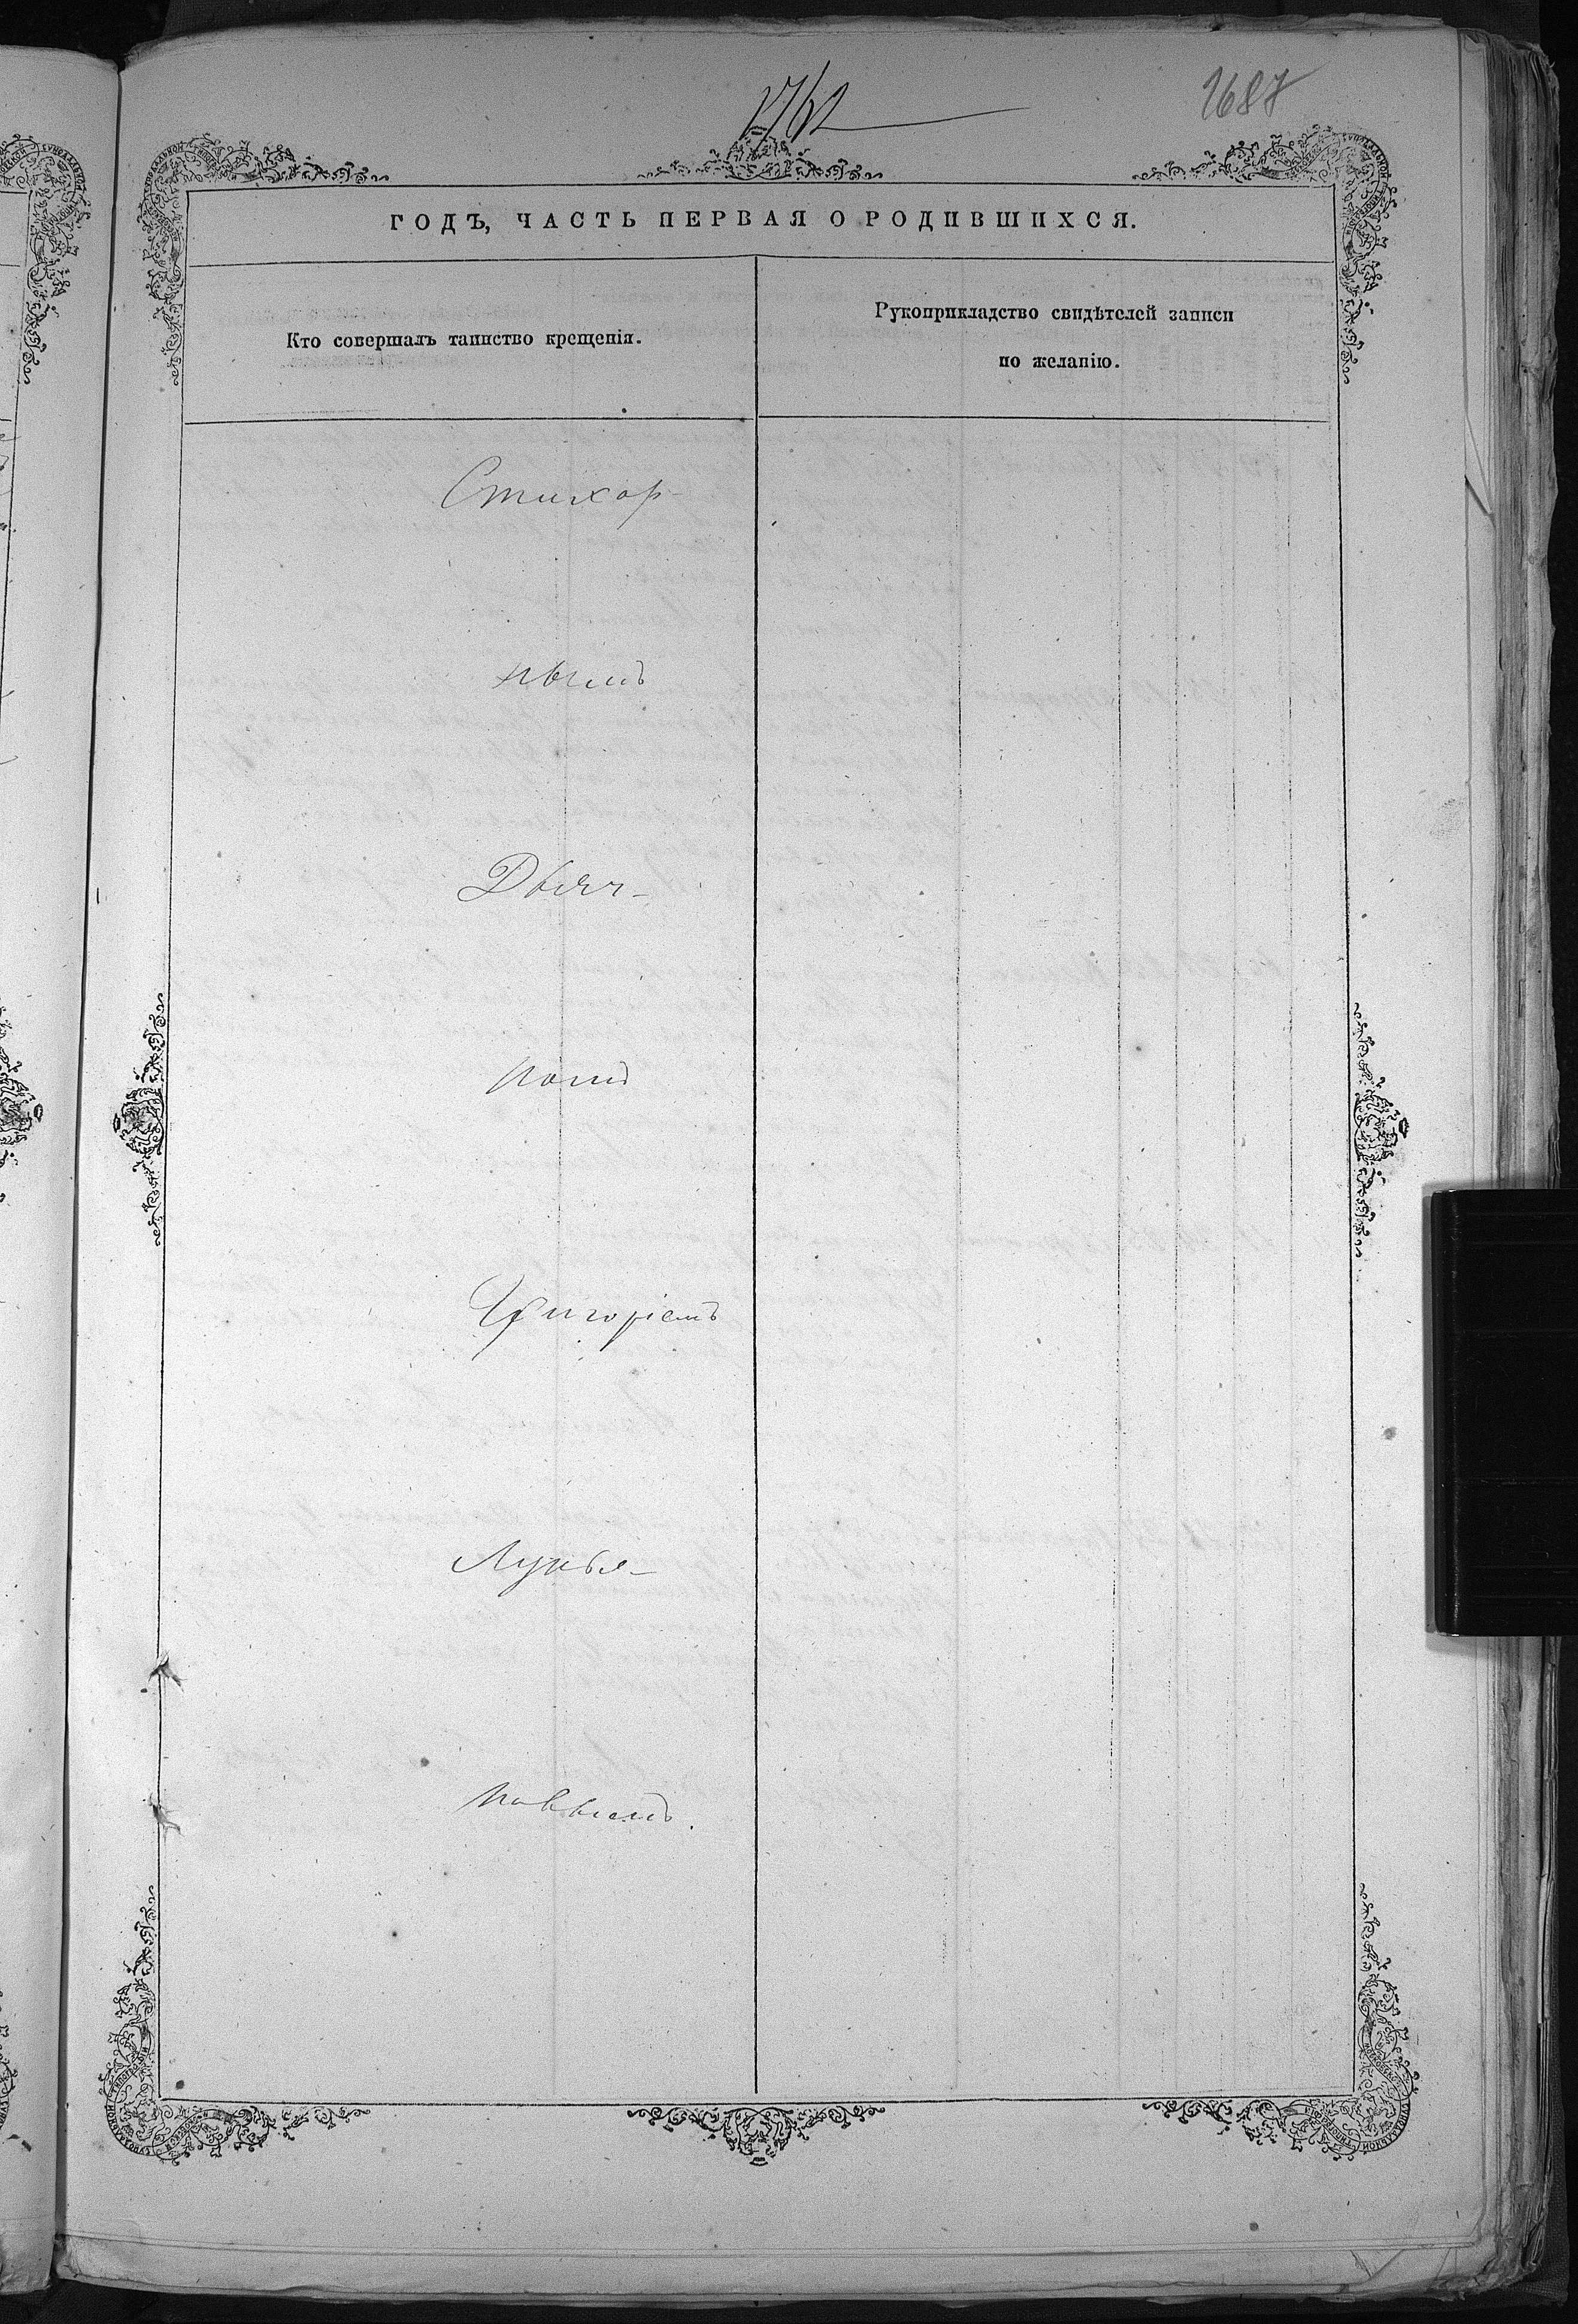 1687
ГОДЪ, ЧАСТЬ ПЕРВАЯ О РОДИВШИХСЯ.
Кто совершалъ таинство крещенія.
Рукоприкладство свидѣтелей записи
по желанію.
Стихор-
нымъ
Дьяч-
комъ
Григоріемъ
Лукья-
новымъ.